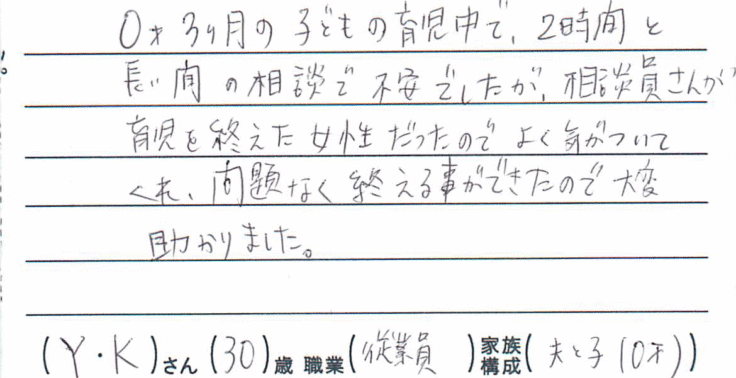 0才3ヶ月の子どもの育児中で、2時間と
長い間の相談で不安でしたが、相談員さんが
育児を終えた女性だったのでよく気がついて
くれ、問題なく終える事ができたので大変
助かりました。
(Y・K)さん(30)歳 職業(従業員)家族構成(夫と子(0才))